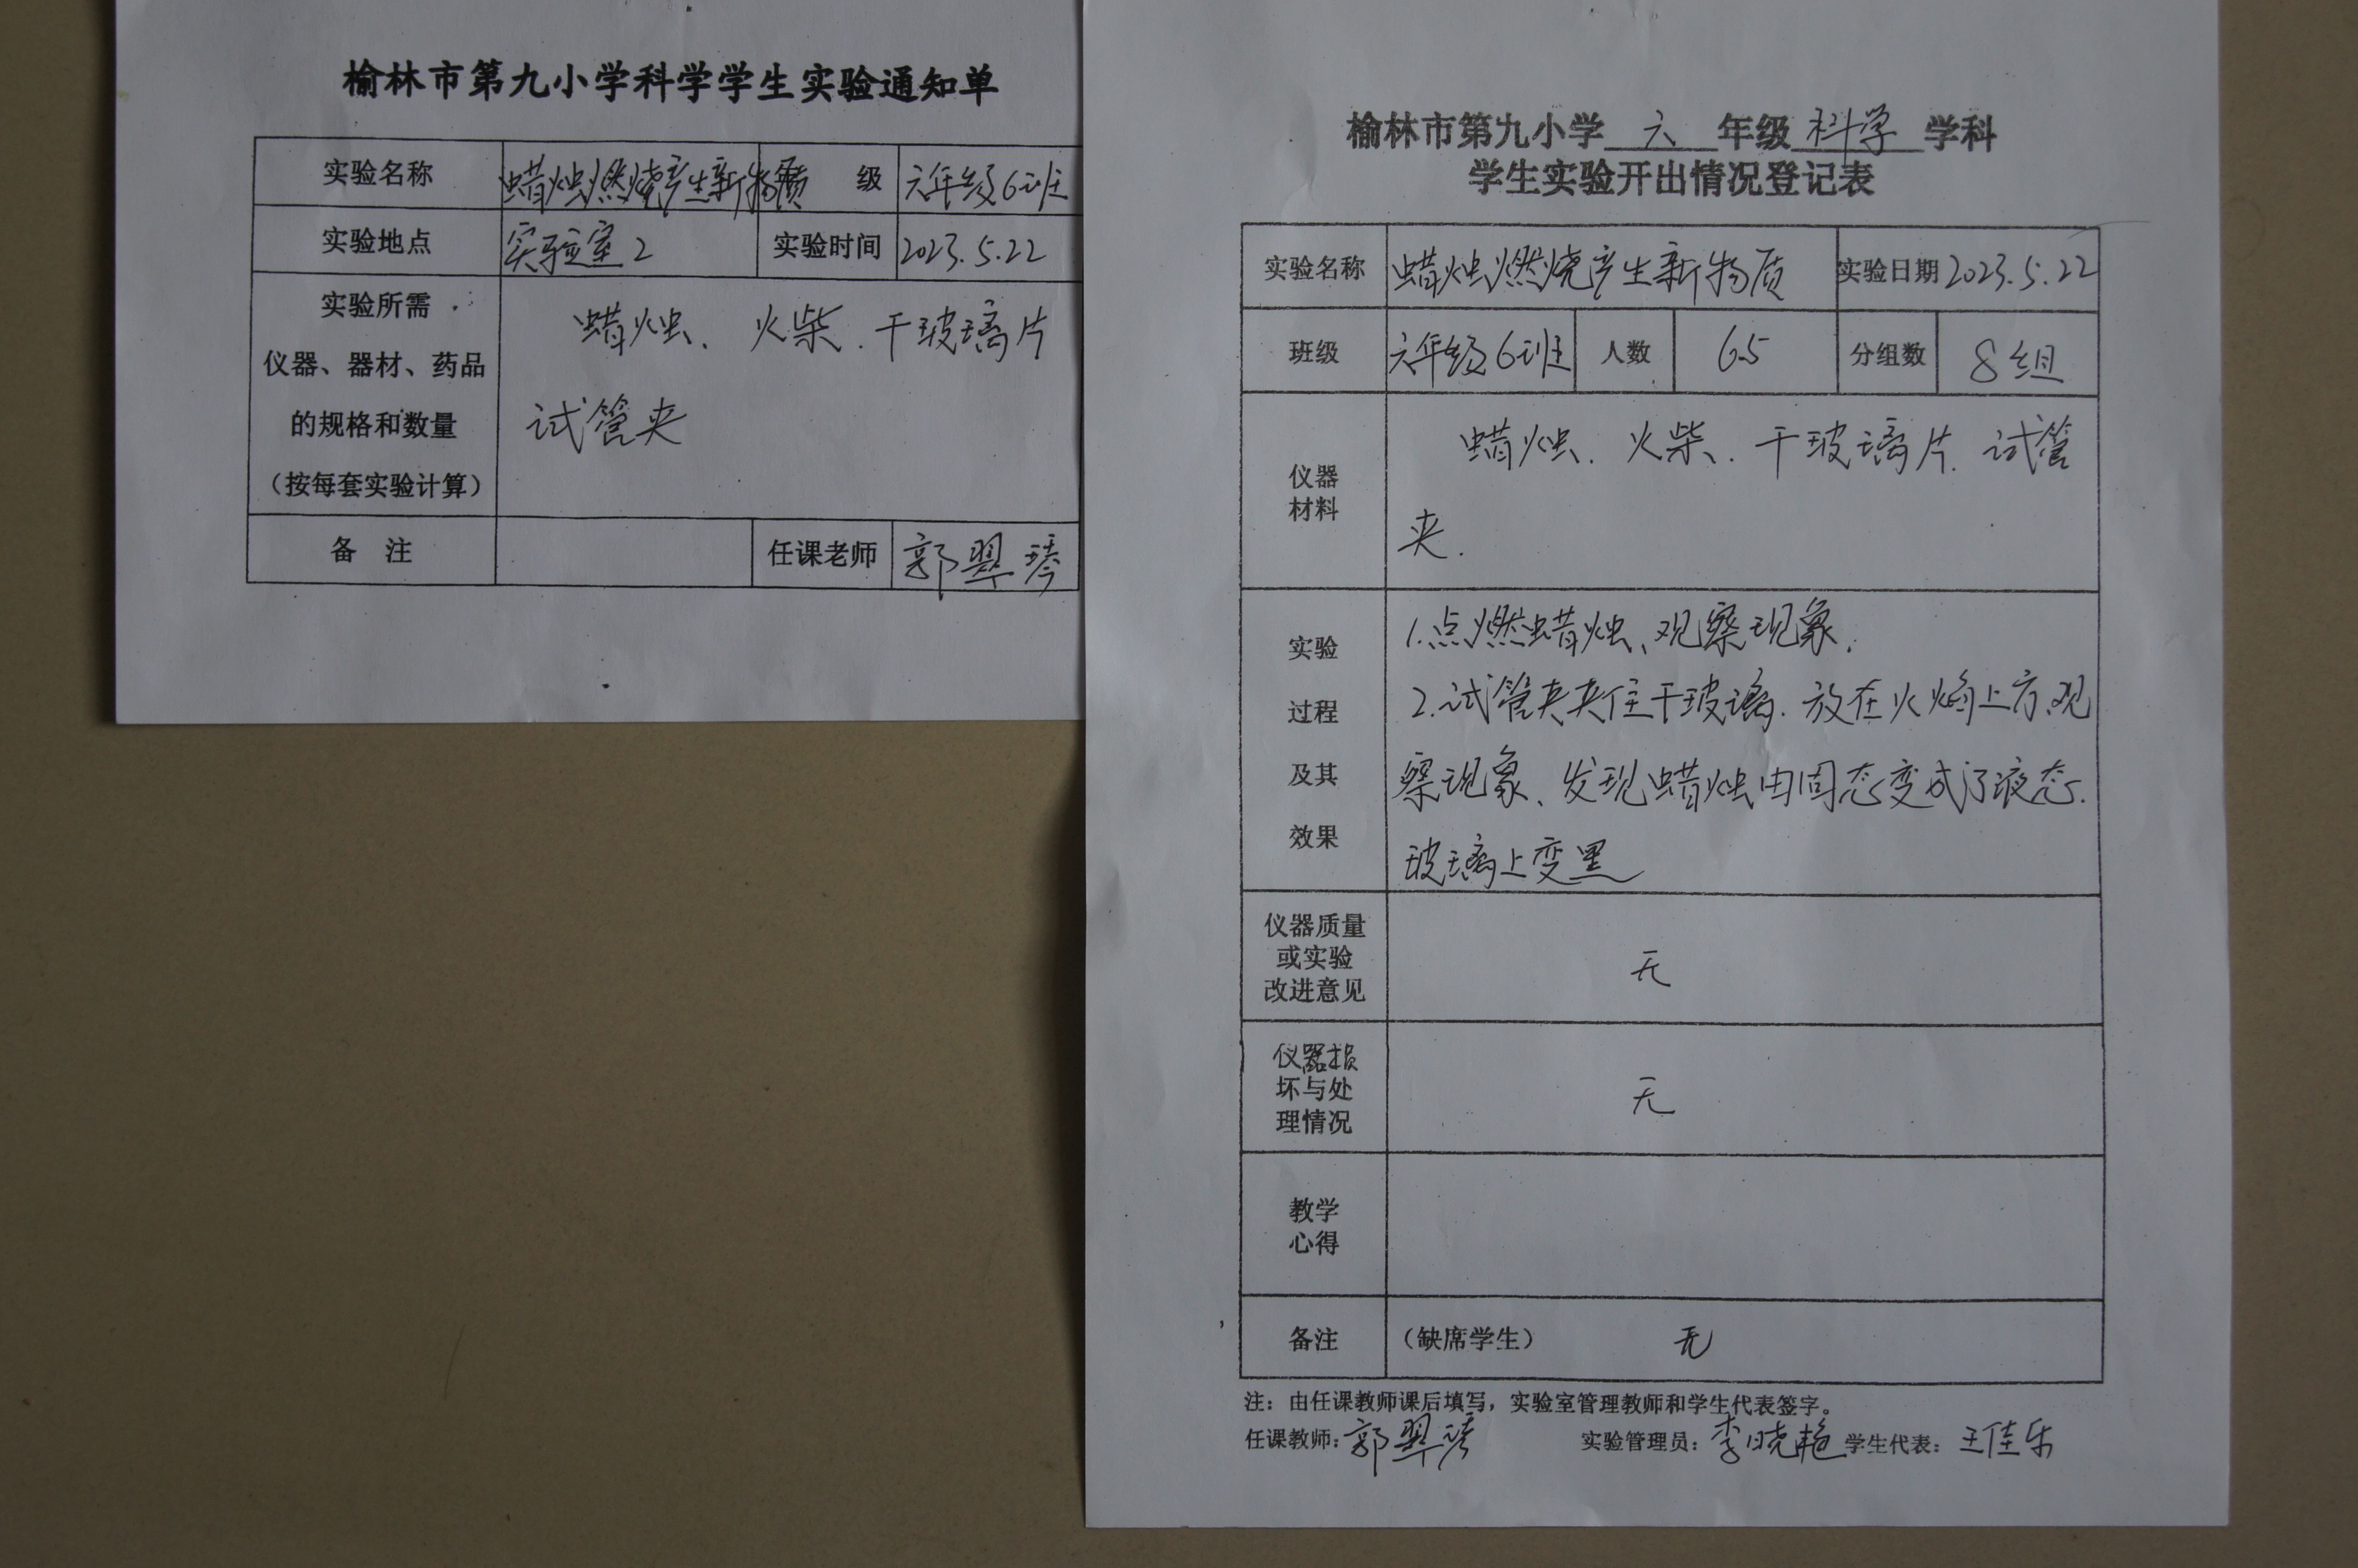 榆林市第九小学科学学生实验通知单
实验名称 蜡烛燃烧产生新物质 级 六年级6班
实验地点 实验室2 实验时间 2023.5.22
实验所需
仪器、器材、药品
的规格和数量
（按每套实验计算）
蜡烛、火柴、干玻璃片
试管夹
备 注 任课老师 郭翠琴
榆林市第九小学 六 年级 科学 学科
学生实验开出情况登记表
实验名称 蜡烛燃烧产生新物质 实验日期 2023.5.22
班级 六年级6班 人数 65 分组数 8组
仪器
材料
蜡烛、火柴、干玻璃片、试管
夹.
实验
过程
及其
效果
1.点燃蜡烛、观察现象.
2.试管夹夹住干玻璃.放在火焰上方、观
察现象、发现蜡烛由固态变成了液态.
玻璃上变黑
仪器质量
或实验
改进意见
无
仪器损
坏与处
理情况
无
教学
心得
备注 （缺席学生） 无
注：由任课教师课后填写，实验室管理教师和学生代表签字。
任课教师：郭翠琴 实验管理员：李晓艳 学生代表：王佳乐